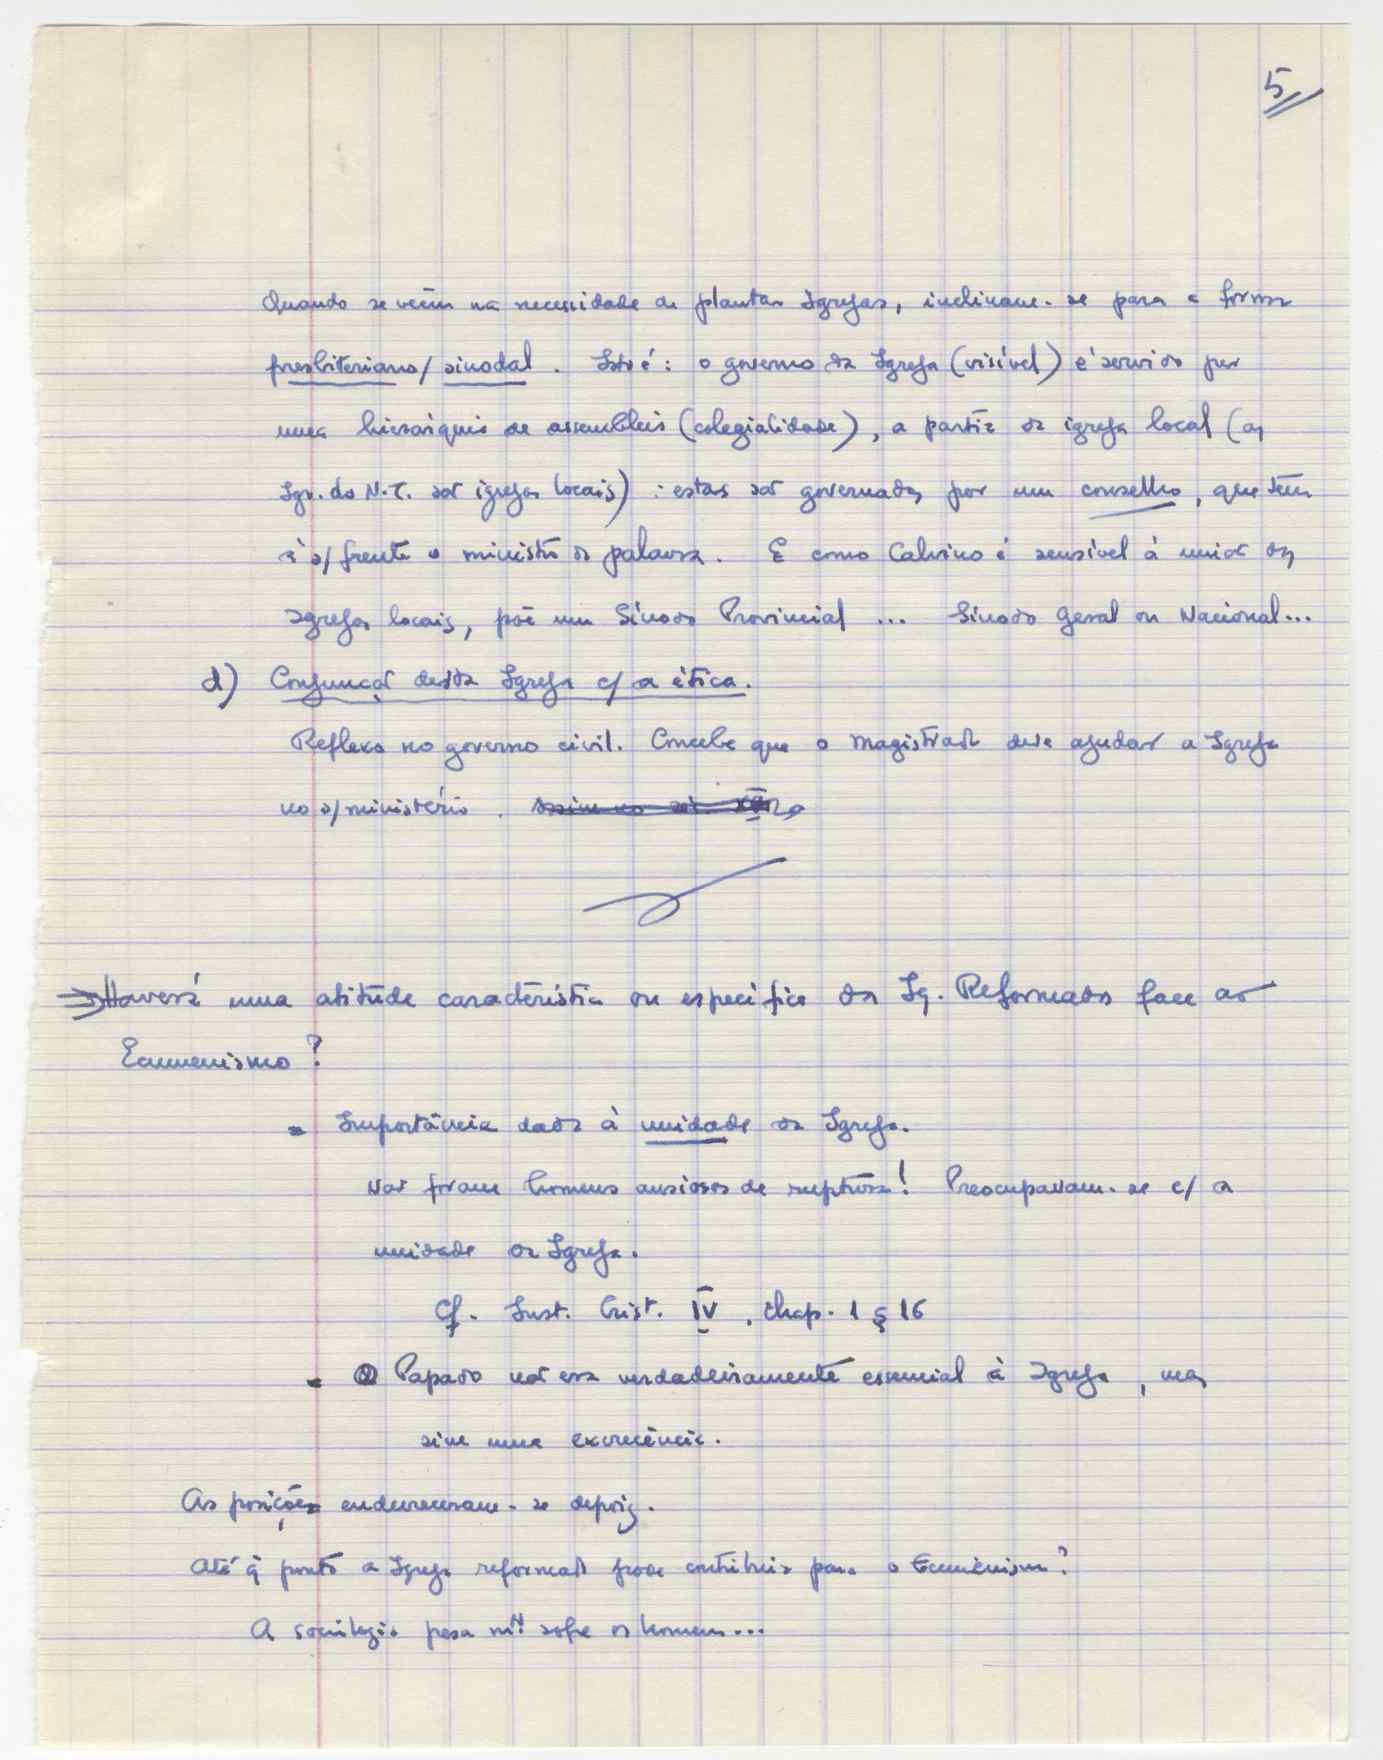 5
Quando se vêem na necessidade de plantar Igrejas, inclinam-se para a forma
presbiteriano/sinodal. Isto é: o governo da Igreja (visível) é servido por
uma hierarquia de assembleis (colegialidade), a partir da igreja local (as
Igr. do N.T. são igrejas locais): estas são governadas por um conselho, que tem
à s/ frente o ministro da palavra. E como Calvino é sensível à união das
Igrejas locais, põe um Sínodo Provincial ... Sínodo Geral ou Nacional...
d) Conjunção desta Igreja c/ a ética.
Reflexo no governo civil. Concebe que o magistrado deve ajudar a Igreja
no s/ ministério.
⇒ Haverá uma atitude característica ou específica da Ig. Reformada face ao
Ecumenismo?
- Importância dada à unidade da Igreja.
Não foram homens ansiosos de ruptura! Preocupavam-se c/ a
unidade da Igreja.
Cf. Inst. Crist. IV, chap. 1 § 16
- O Papado não era verdadeiramente essencial à Igreja, mas
sim uma excrecência.
As posições endureceram-se depois.
Até q̃ ponto a Igreja reformada pode contribuir para o Ecumenismo?
A sociologia pesa mt sobre os homens...